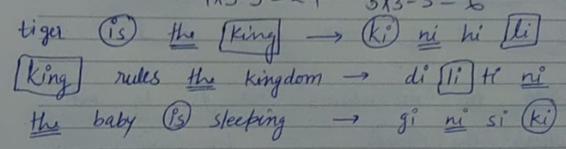 tiger is the king → ki ni hi li
king rules the kingdom → di li ti ni
the baby is sleeping → gi ni si ki